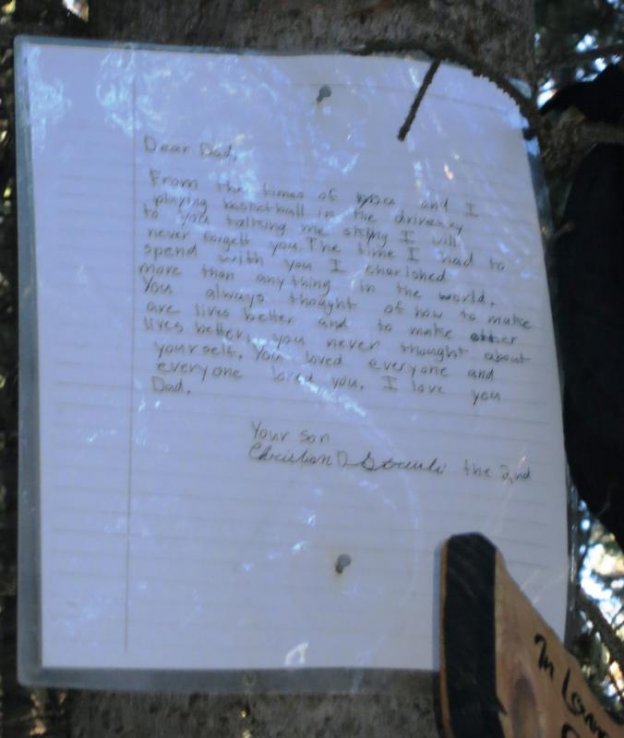 Dear Dad,
From the times of you and I
playing basketball in the driveway
to you talking me skiing I will
never forgett you. The time I had to
spend with you I cherished
more than anything in the world.
You always thought of how to make
are lives better and to make other
lives better, you never thought about
yourself. You loved everyone and
everyone loved you. I love you
Dad.
Your son
Christian D the 2nd
In